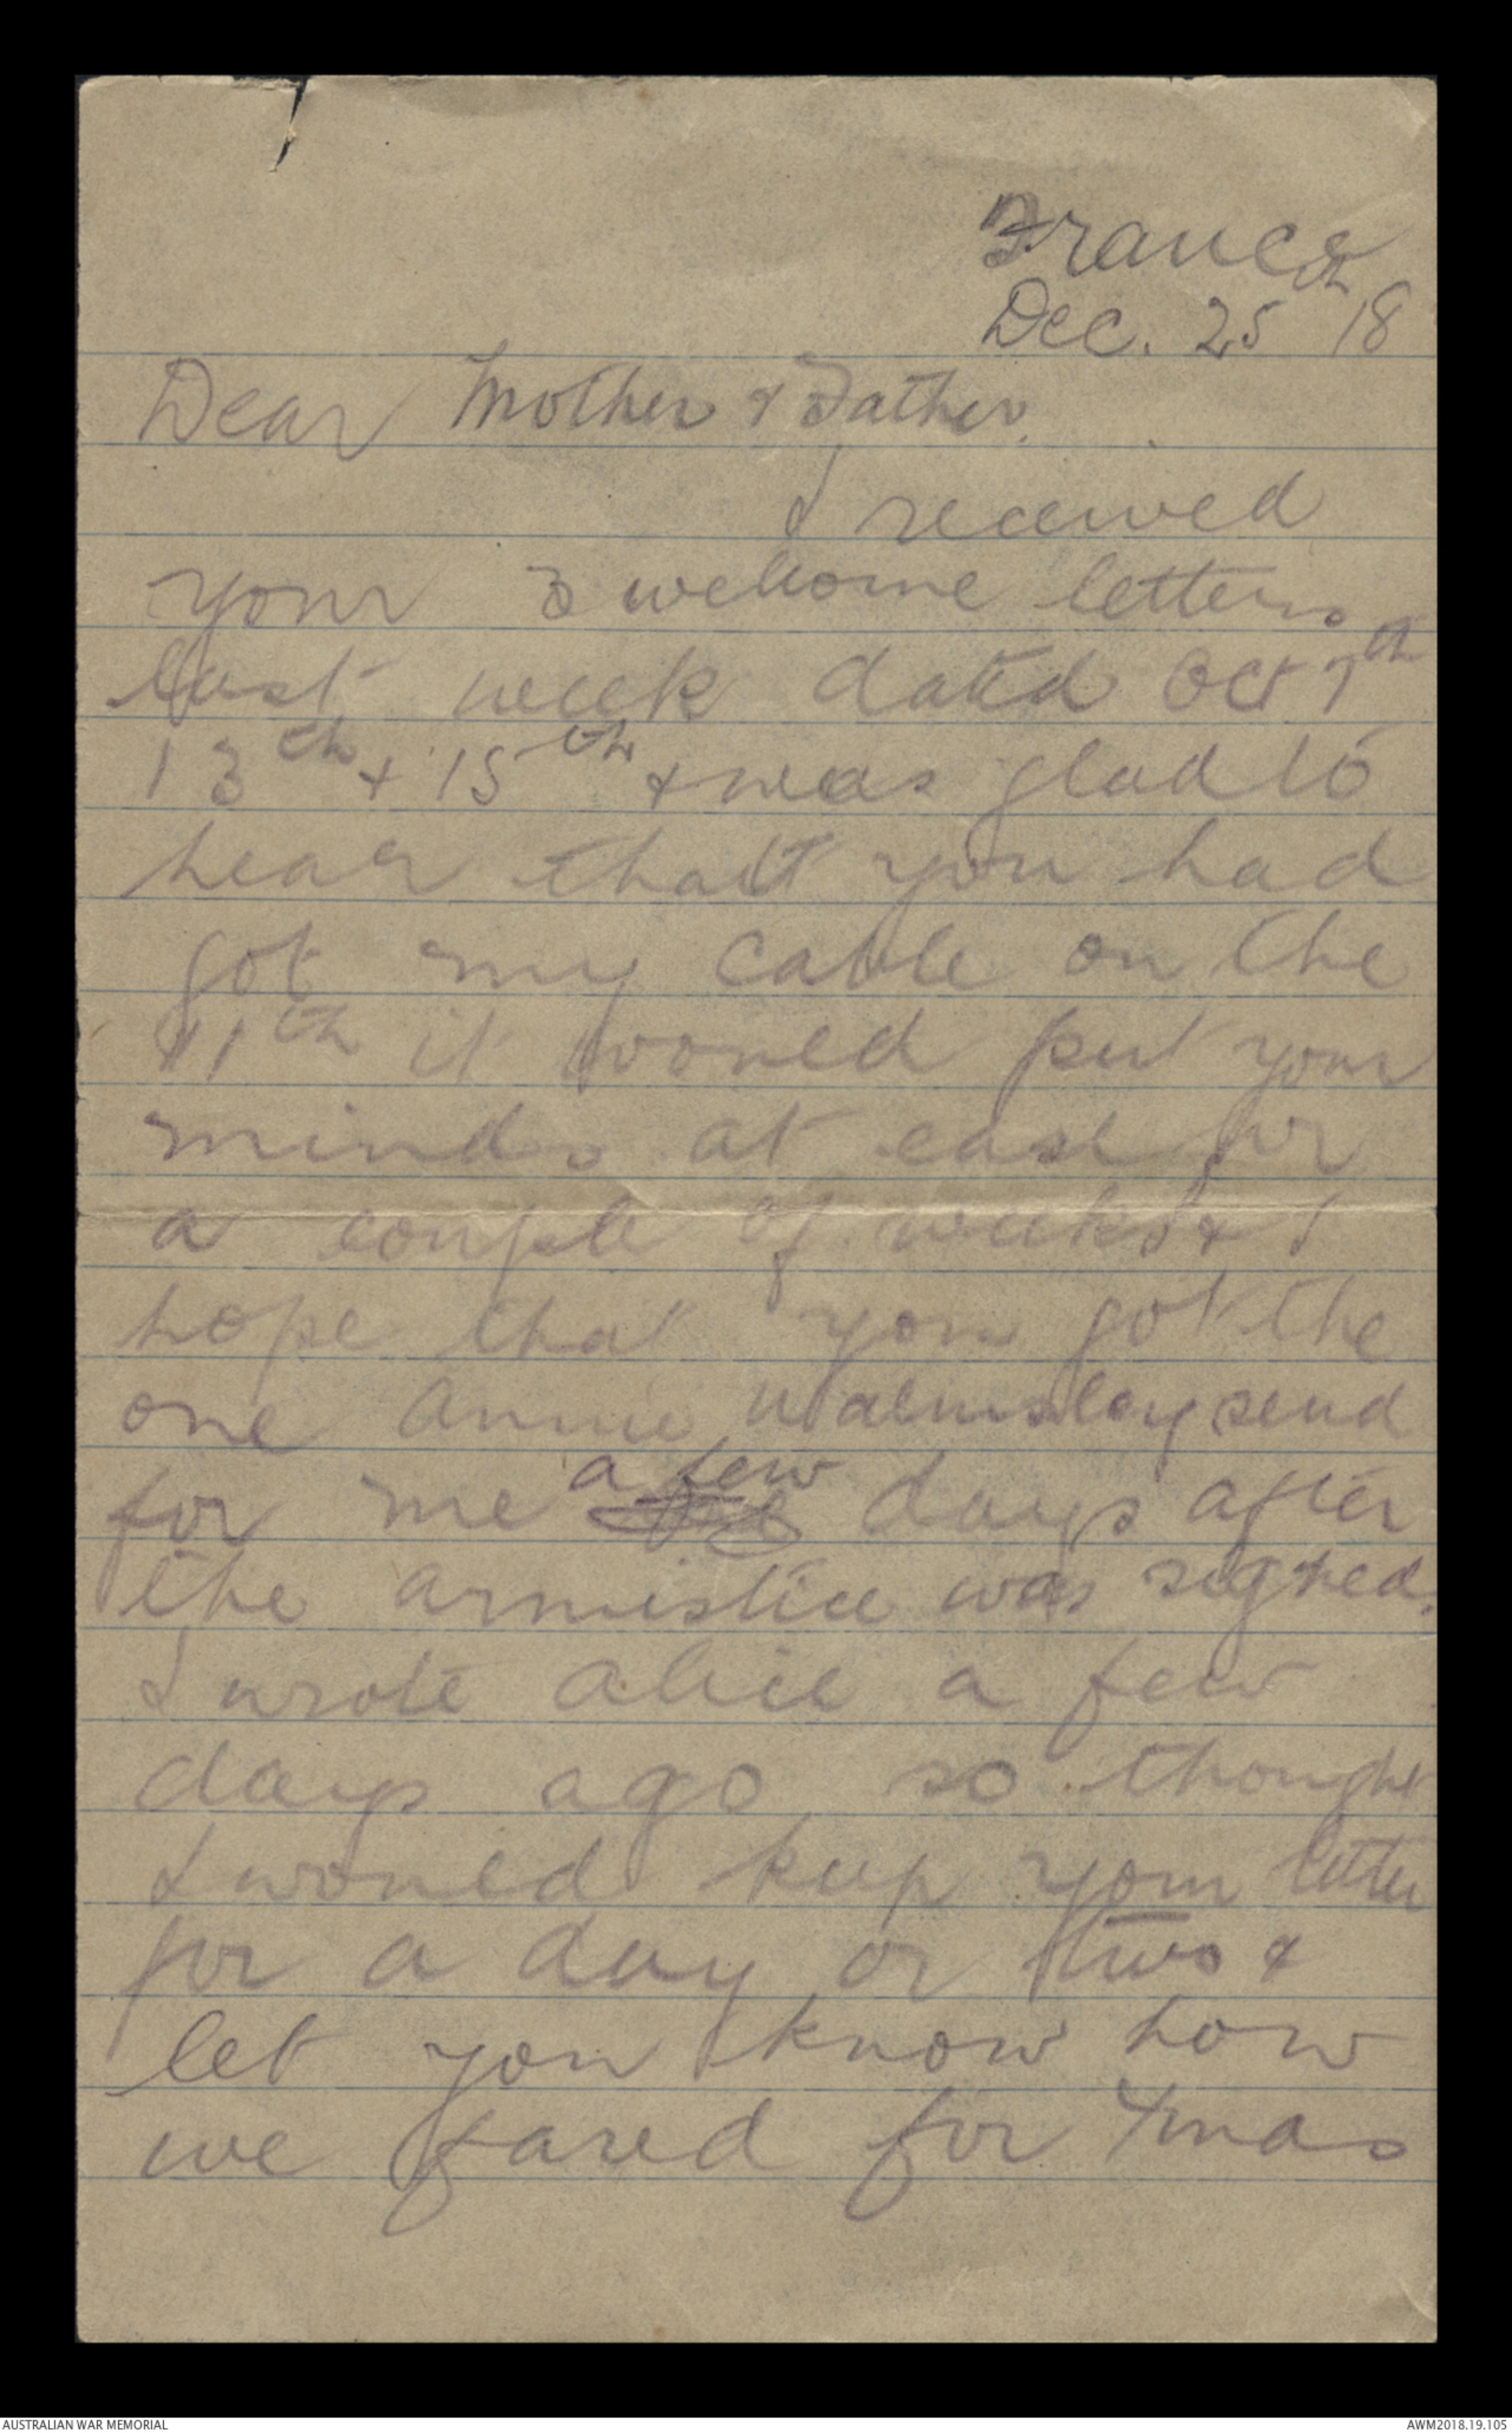 France
Dec. 25th 18
Dear Mother & Father.
I received
your 3 welcome letters
last week dated Oct 7th
13th & 15th & was glad to
hear that you had
got my cable on the
11th it would put your
minds at ease for
a couple of weeks & I
hope that you got the
one Annie Walmsley send
for me a few days after
the armistice was signed.
I wrote Alice a few
days ago so thought
I would keep your letter
for a day or two &
let you know how
we fared for Xmas
AUSTRALIAN WAR MEMORIAL
AWM2018.19.105